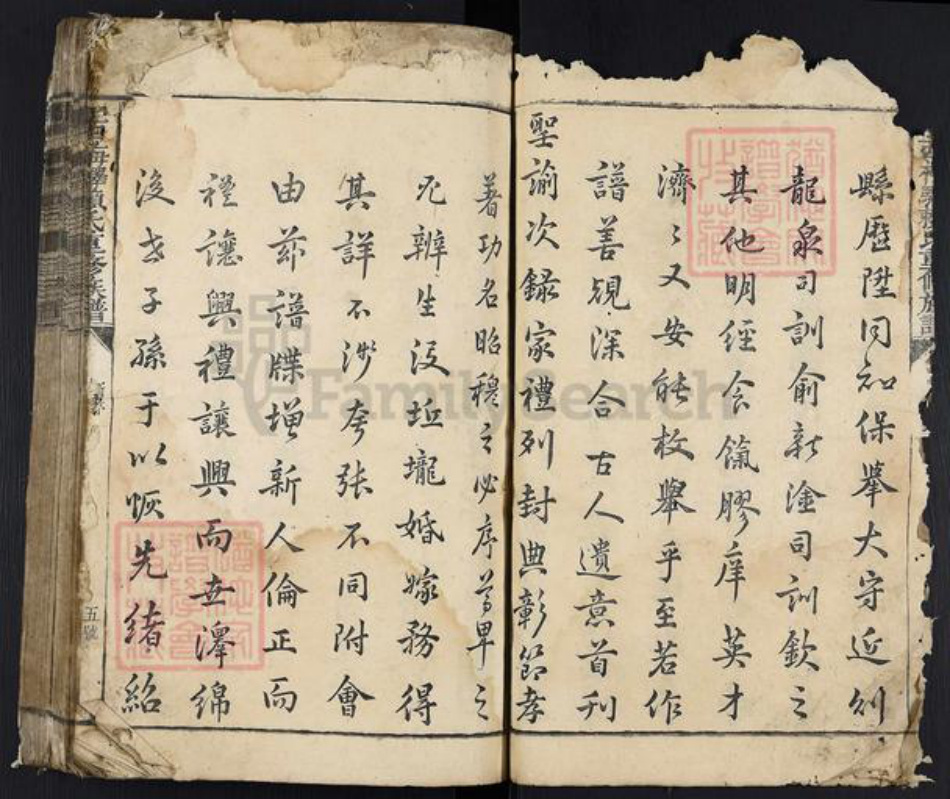 縣歷陞同知保舉大守近則
龍泉司訓俞新淦司訓欽之
其他明經食餼膠庠英才
濟〻又安能枚舉乎至若作
譜善規深合古人遺意首刋
聖諭次錄家禮列封典彰節孝
著功名昭穆之必序尊卑之
冘辨生沒坵壠婚嫁務得
其詳不涉夸张不同附會
由茲譜牒增新人倫正而
禮讓興禮讓興而世澤綿
後世子孫于以恢先緒紹
五號
FamilySearch